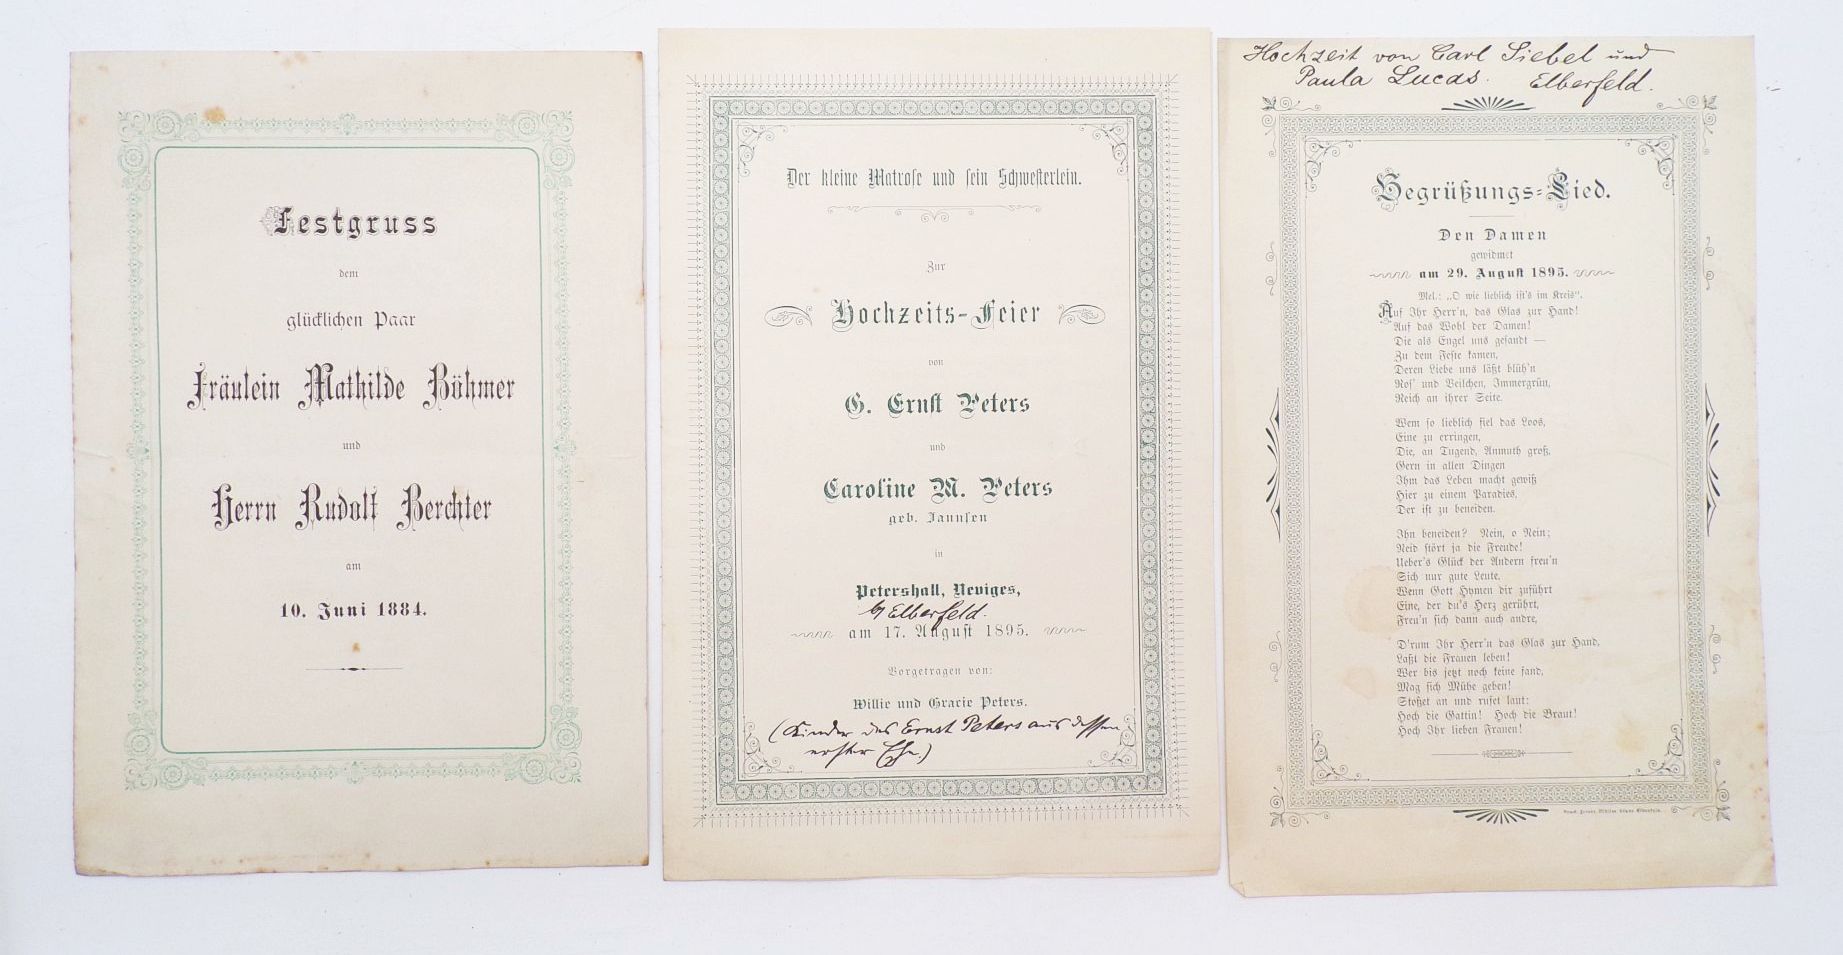 Festgruss
dem
glücklichen Paar
Fräulein Mathilde Böhmer
und
Herrn Rudolf Berchter
am
10. Juni 1884.
Der kleine Matrose und sein Schwesterlein.
Zur
Hochzeits-Feier
von
G. Ernst Peters
und
Caroline M. Peters
geb. Jannsen
in
Petershall, Neviges,
b/ Elberfeld.
am 17. August 1895.
Vorgetragen von:
Willie und Gracie Peters.
(Kinder des Ernst Peters aus dessen
erster Ehe.)
Hochzeit von Carl Siebel und
Paula Lucas. Elberfeld.
Begrüßungs-Lied.
Den Damen
gewidmet
am 29. August 1895.
Mel.: „O wie lieblich ist's im Kreis“.
Auf Ihr Herr'n, das Glas zur Hand!
Auf das Wohl der Damen!
Die als Engel uns gesandt —
Zu dem Feste kamen,
Deren Liebe uns läßt blüh'n
Ros' und Veilchen, Immergrün,
Reich an ihrer Seite.
Wem so lieblich fiel das Loos,
Eine zu erringen,
Die, an Tugend, Anmuth groß,
Gern in allen Dingen
Ihm das Leben macht gewiß
Hier zu einem Paradies,
Der ist zu beneiden.
Ihn beneiden? Nein, o Nein;
Neid stört ja die Freude!
Ueber's Glück der Andern freu'n
Sich nur gute Leute,
Wenn Gott Hymen dir zuführt
Eine, der du's Herz gerührt,
Freu'n sich dann auch andre,
D'rum Ihr Herr'n das Glas zur Hand,
Laßt die Frauen leben!
Wer bis jetzt noch keine fand,
Mag sich Mühe geben!
Stoßet an und rufet laut:
Hoch die Gattin! Hoch die Braut!
Hoch Ihr lieben Frauen!